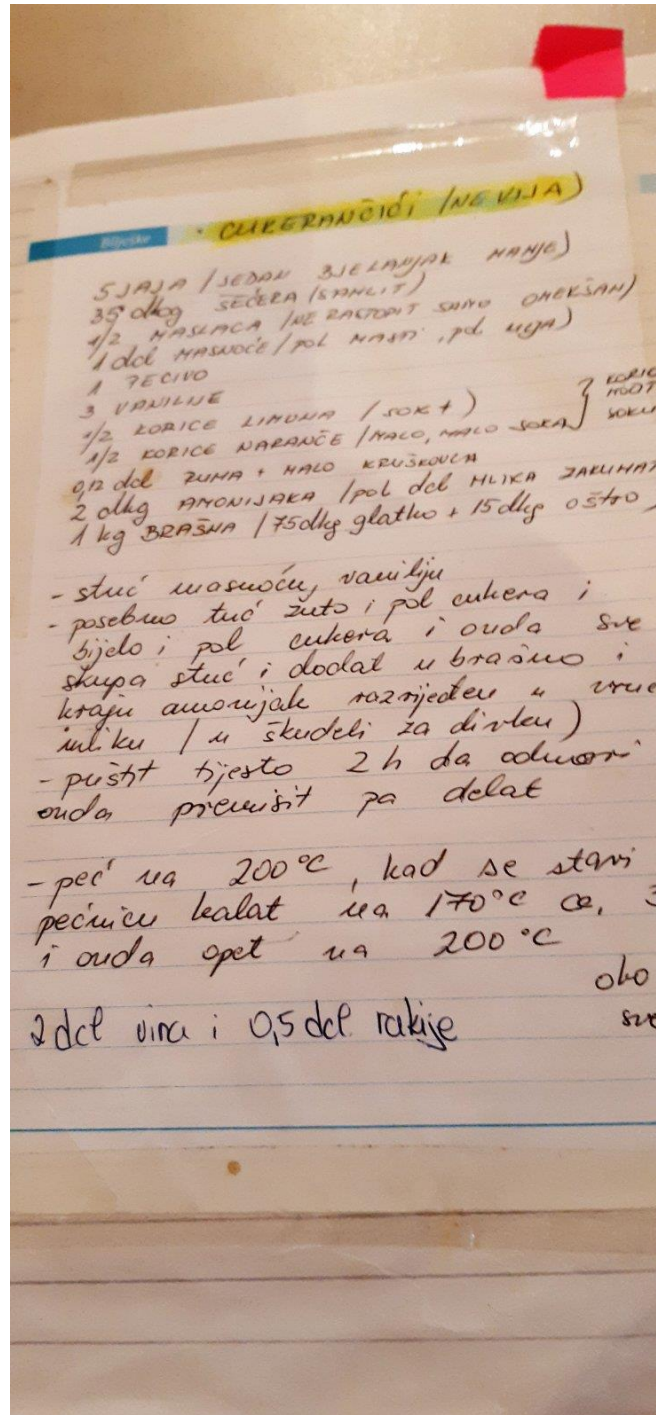 Bilješke
· CUKERANČIĆI /NEVIJA)
5 JAJA /JEDAN BJELANJAK MANJE)
35 dkg ŠEĆERA /SAMLIT)
1/2 MASLACA /NE RASTOPIT SAMO OMEKŠAN)
1 dcl MASNOĆE / pol MASTI, pol ULJA)
1 PECIVO
3 VANILIJE
1/2 KORICE LIMUNA / SOK +)
1/2 KORICE NARANČE /MALO, MALO SOKA)
0,12 dcl RUMA + MALO KRUŠKOVCA
2 dkg AMONIJAKA /pol del MLIKA
1 kg BRAŠNA / 75 dkg glatko + 15 dkg oštro
- stuć masnoću, vaniliju
- posebno tuć žuto i pol cukera i
bijelo i pol cukera i onda sve
skupa stuć i dodat u brašno i
kraju amonijak razrijeđen u
mliku / u škudeli za divku)
- pustit tijesto 2 h da odmori
onda premisit pa delat
- peć na 200°C, kad se stavi
pećnicu kalat na 170°C ca. 3
i onda opet na 200°C
oko
2 dcl vina i 0,5 dcl rakije